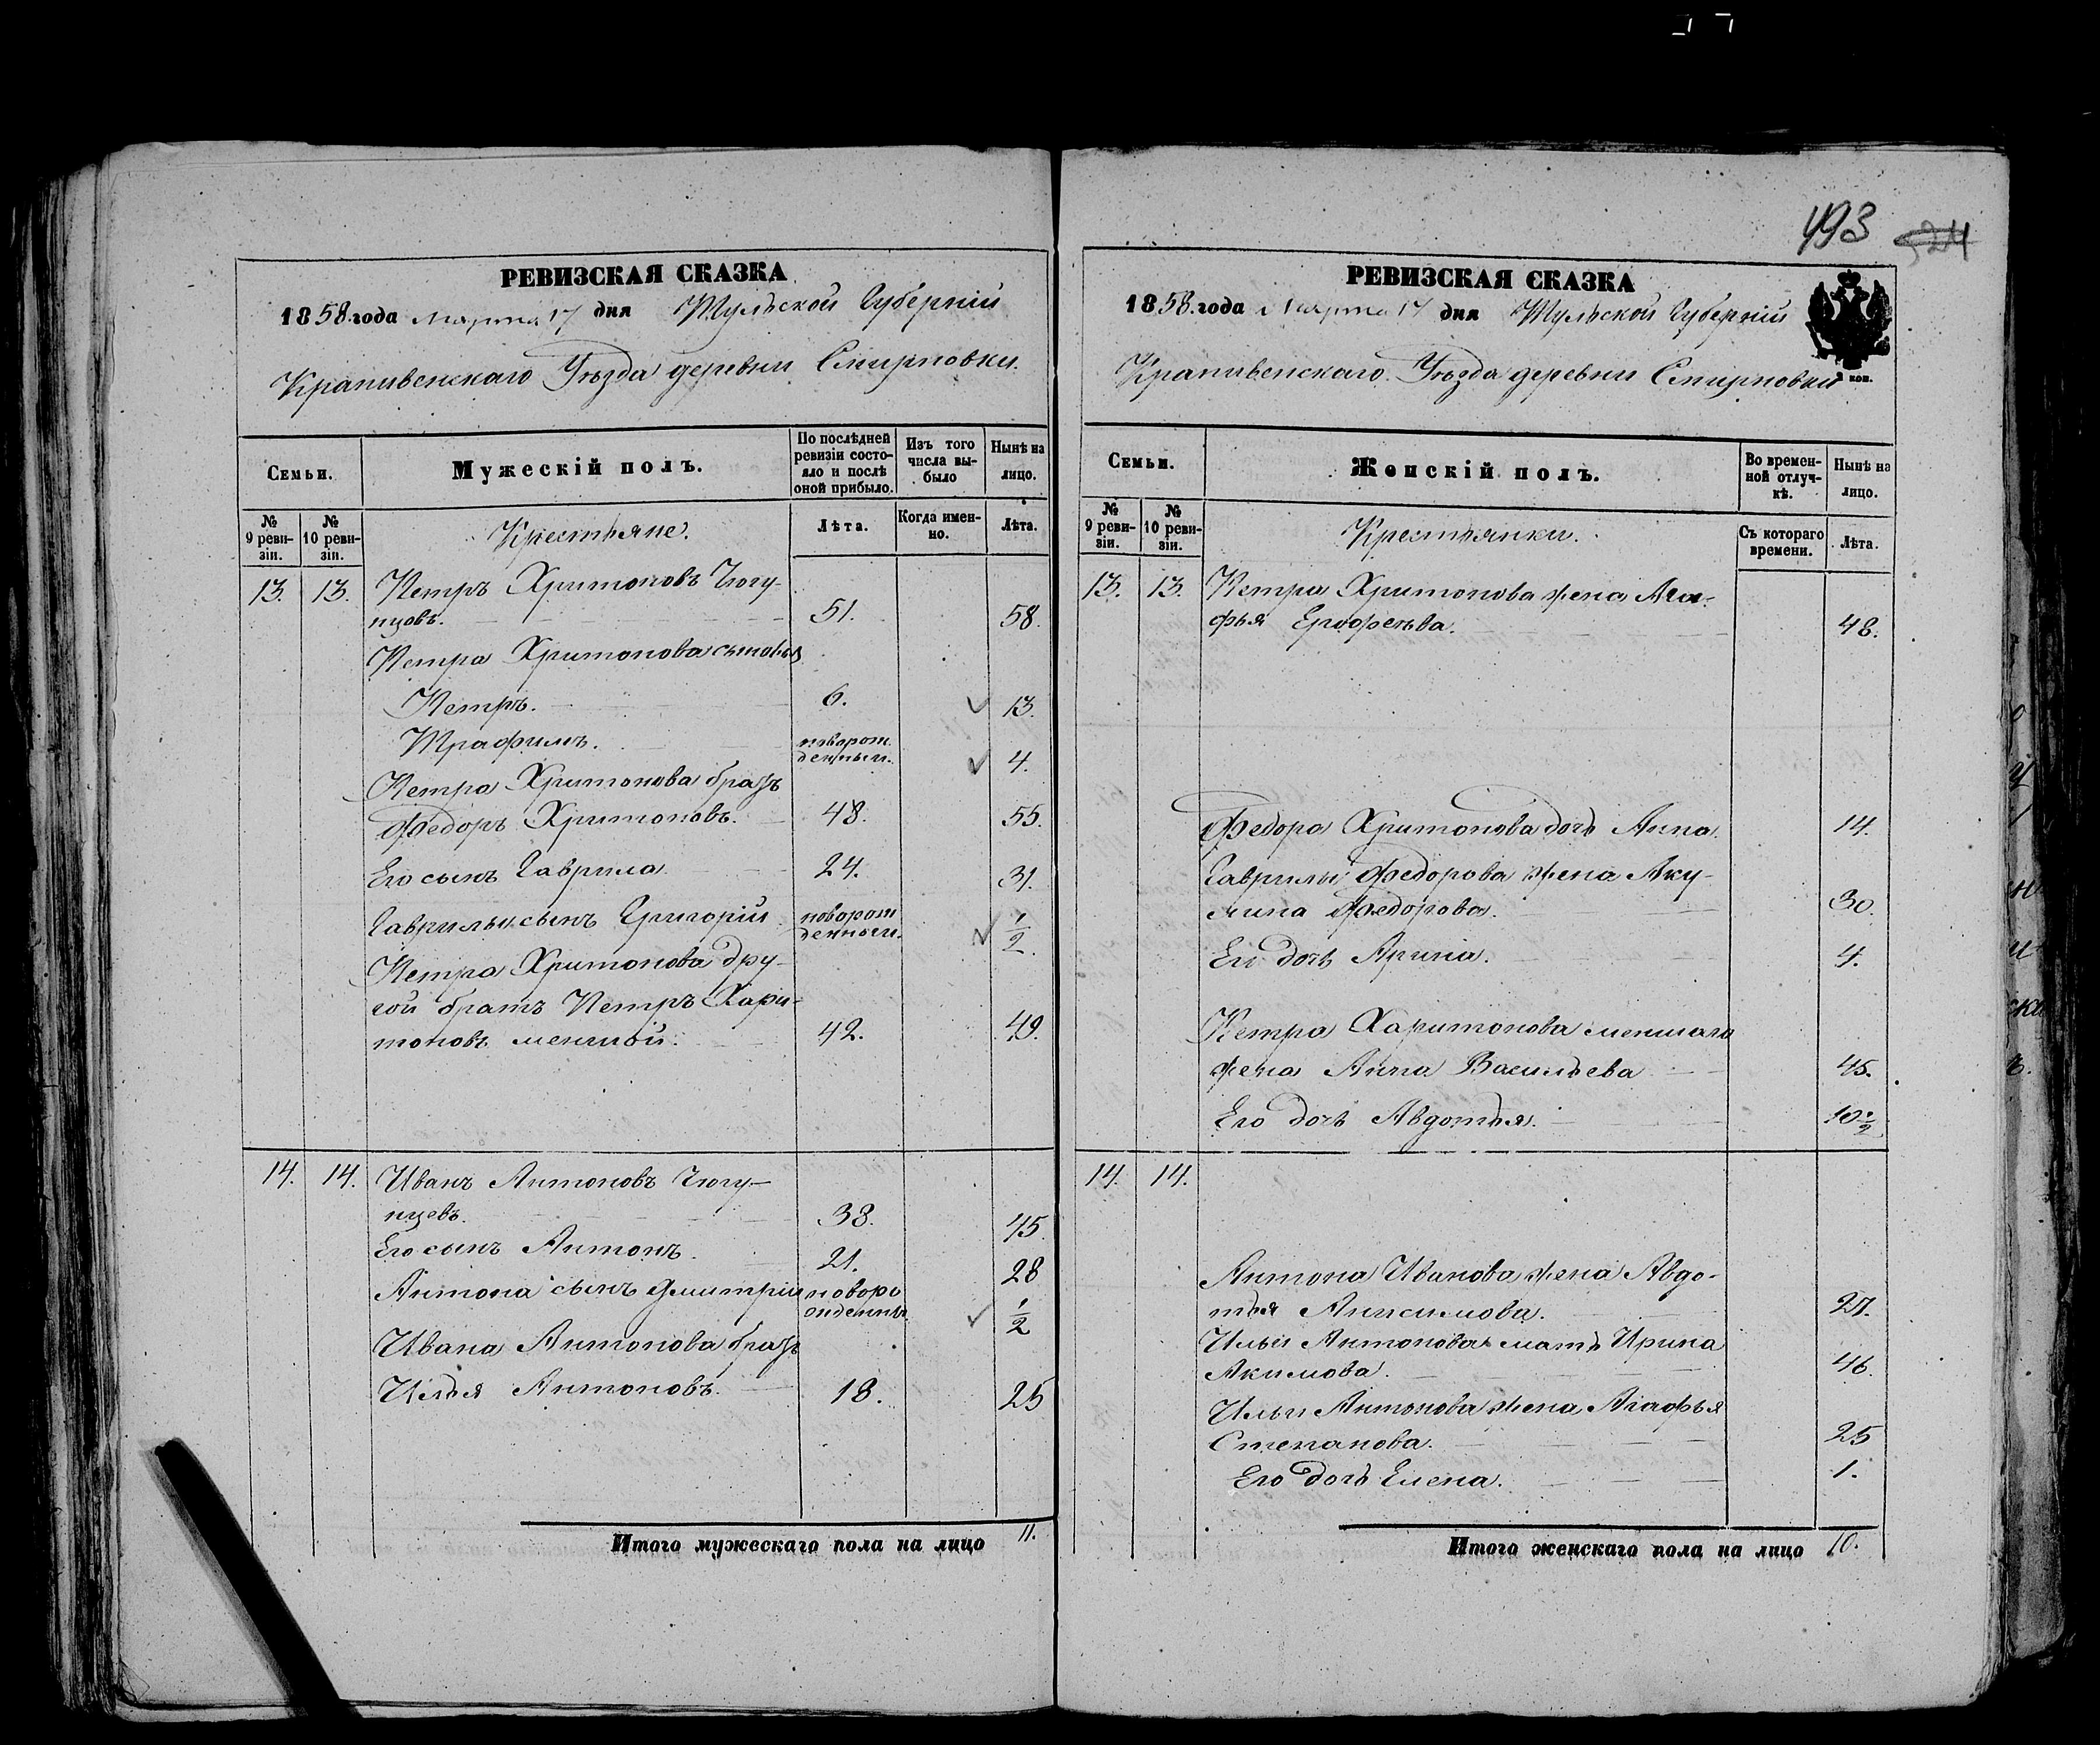 РЕВИЗСКАЯ СКАЗКА
1858. года Марта 17 дня Тульской Губерніи
Крапивенскаго Уѣзда деревни Смирновки.
Семьи.
Мужескій полъ.
По послѣдней
ревизіи состо-
яло и послѣ
оной прибыло.
Изъ того
числа вы-
было
Нынѣ на
лицо.
№
9 реви-
зіи.
№
10 реви-
зіи.
Крестьяне.
Лѣта.
Когда имен-
но.
Лѣта.
13. 13. Петръ Хритоновъ Чюгу-
нцовъ. 51. 58.
Петра Хритонова сыновья
Петръ. 6. 13.
Трафимъ. новорож
денный. 4.
Петра Хритонова братъ
Федоръ Хритоновъ. 48. 55.
Его сынъ Гаврила 24. 31.
Гаврилы сынъ Григорій новорож
денный. 1/2
Петра Хритонова дру-
гой братъ Петръ Хари-
тоновъ меншой. 42. 49.
14. 14. Иванъ Антоновъ Чюгу-
нцевъ. 38. 45.
Его сынъ Антонъ. 21. 28
Антона сынъ Дмитрій новоро
1/2
Ивана Антонова братъ
Илья Антоновъ. 18. 25
Итого мужескаго пола на лицо 11.
493
524
РЕВИЗСКАЯ СКАЗКА
1858. года Марта 17 дня Тульской Губерніи
Крапивенскаго Уѣзда деревни Смирновки
коп.
Семьи.
Женскій полъ.
Во времен-
ной отлуч-
кѣ.
Нынѣ на
лицо.
№
9 реви-
зіи.
№
10 реви-
зіи.
Крестьянки.
Съ котораго
времени.
Лѣта.
13. 13. Петра Хритонова жена Ага-
фья Ерофеева. 48.
Федора Хритонова дочь Анна. 14.
Гаврилы Федорова жена Аку-
лина Федорова. 30.
Его дочь Арина. 4.
Петра Харитонова меншаго
жена Анна Васильева 45.
Его дочь Авдотья. 10 1/2
14. 14.
Антона Иванова жена Авдо-
тья Анисимова. 27.
Ильи Антонова мать Ирина
Акимова. 46.
Ильи Антонова жена Агафья
Степанова. 25
Его дочь Елена. 1.
Итого женскаго пола на лицо 10.